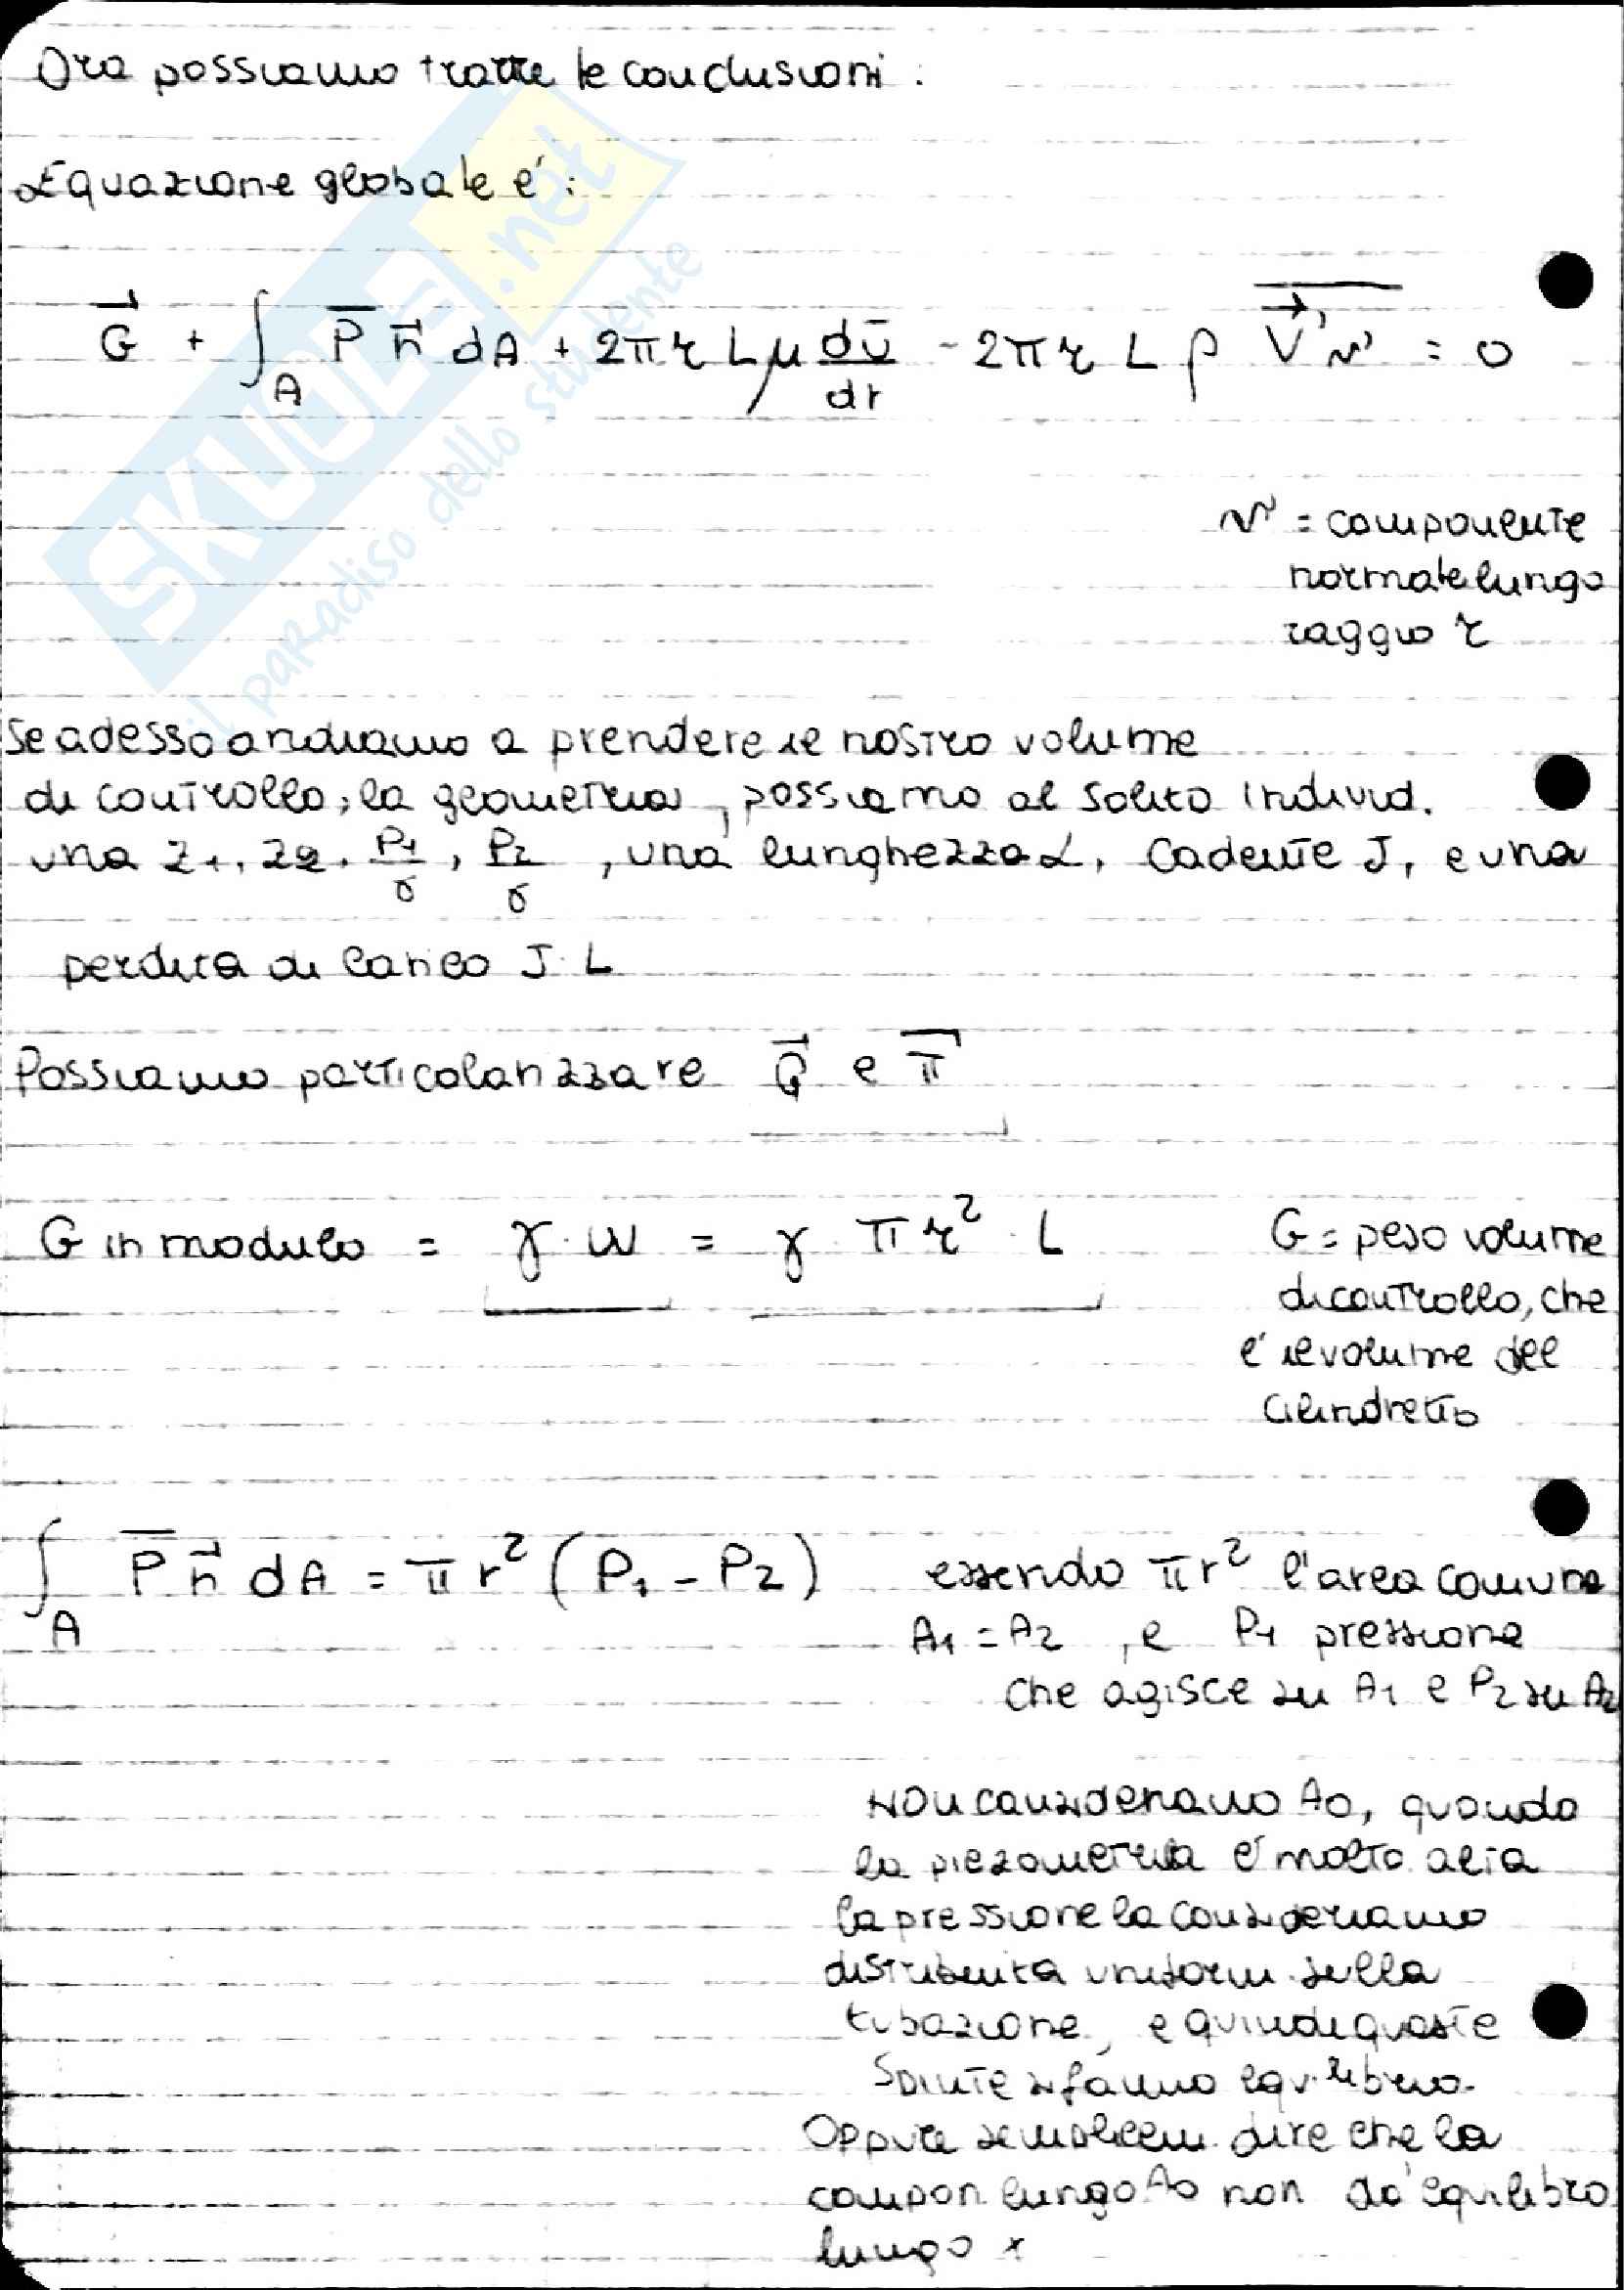 Ora possiamo trarre le conclusioni :
Equazione globale è :
G⃗ + ∫_A P̅ n⃗ dA + 2πr L μ dū/dr - 2πr L ρ V⃗'v' = 0
v' = componente
normale lungo
raggio r
Se adesso andiamo a prendere il nostro volume
di controllo, la geometria, possiamo al solito individ.
una z1, z2, P1/γ, P2/γ, una lunghezza L, cadente J, e una
perdita di carico J · L
Possiamo particolarizzare G⃗ e π⃗
G in modulo = γ · W = γ πr² · L
G = peso volume
di controllo, che
è il volume del
cilindretto
∫_A P̅ n⃗ dA = πr² (P1 - P2)
essendo πr² l'area comune
A1 = A2 , e P1 pressione
che agisce su A1 e P2 su A2
Non consideriamo A0, quando
la piezometrica è molto alta
la pressione la consideriamo
distribuita uniform. sulla
tubazione, e quindi queste
spinte si fanno equilibrio.
Oppure semplicem. dire che la
compon lungo A0 non dà equilibrio
lungo x
SKUOLA.net
il paradiso dello studente